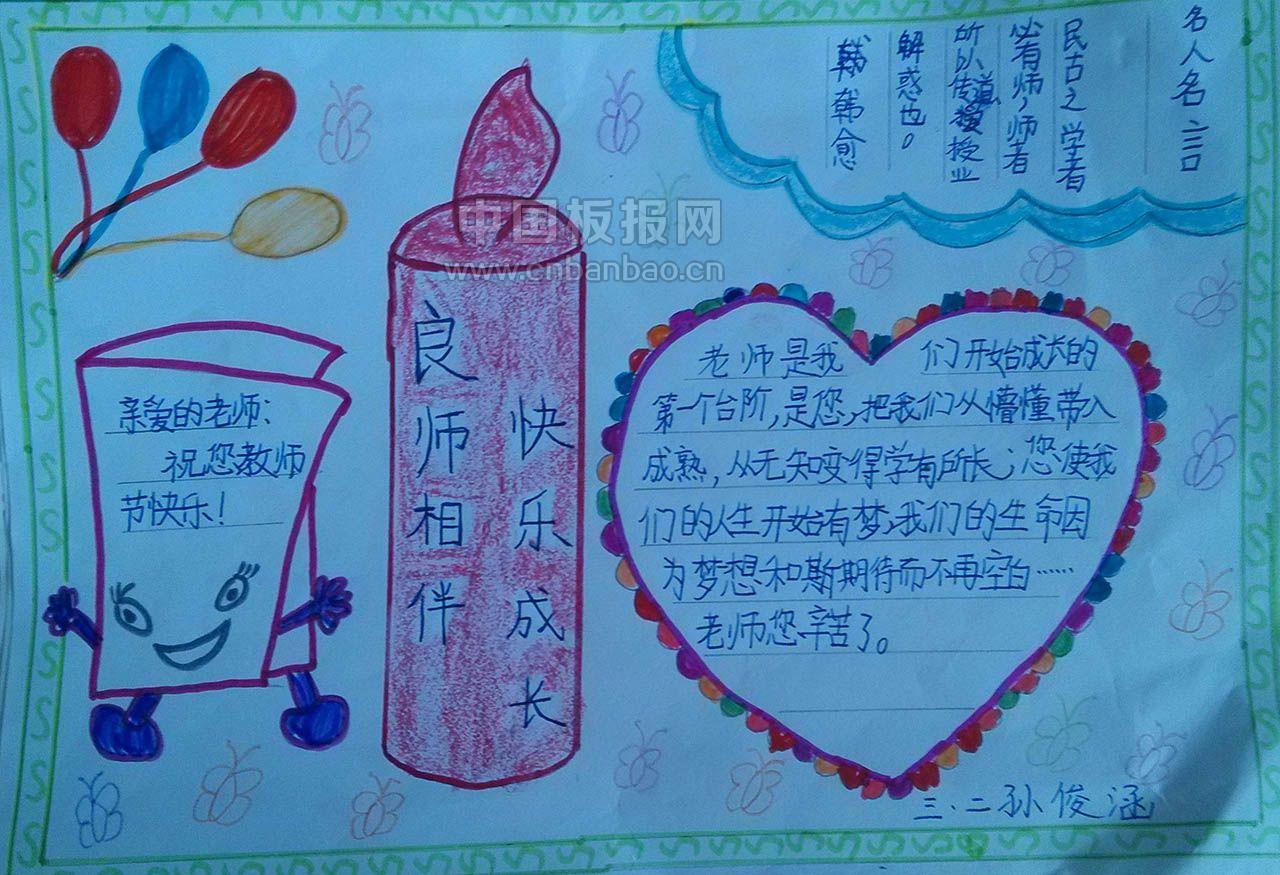 名人名言
民古之学者
必有师，师者
所以传道授业
解惑也。
韩愈
中国板报网
www.cnbanbao.cn
良师相伴
快乐成长
亲爱的老师：
祝您教师
节快乐！
老师是我们开始成长的
第一个台阶，是您，把我们从懵懂带入
成熟，从无知变得学有所长；您使我
们的人生开始有梦，我们的生命因
为梦想和斯期待而不再空白……
老师您辛苦了。
三.二孙俊涵